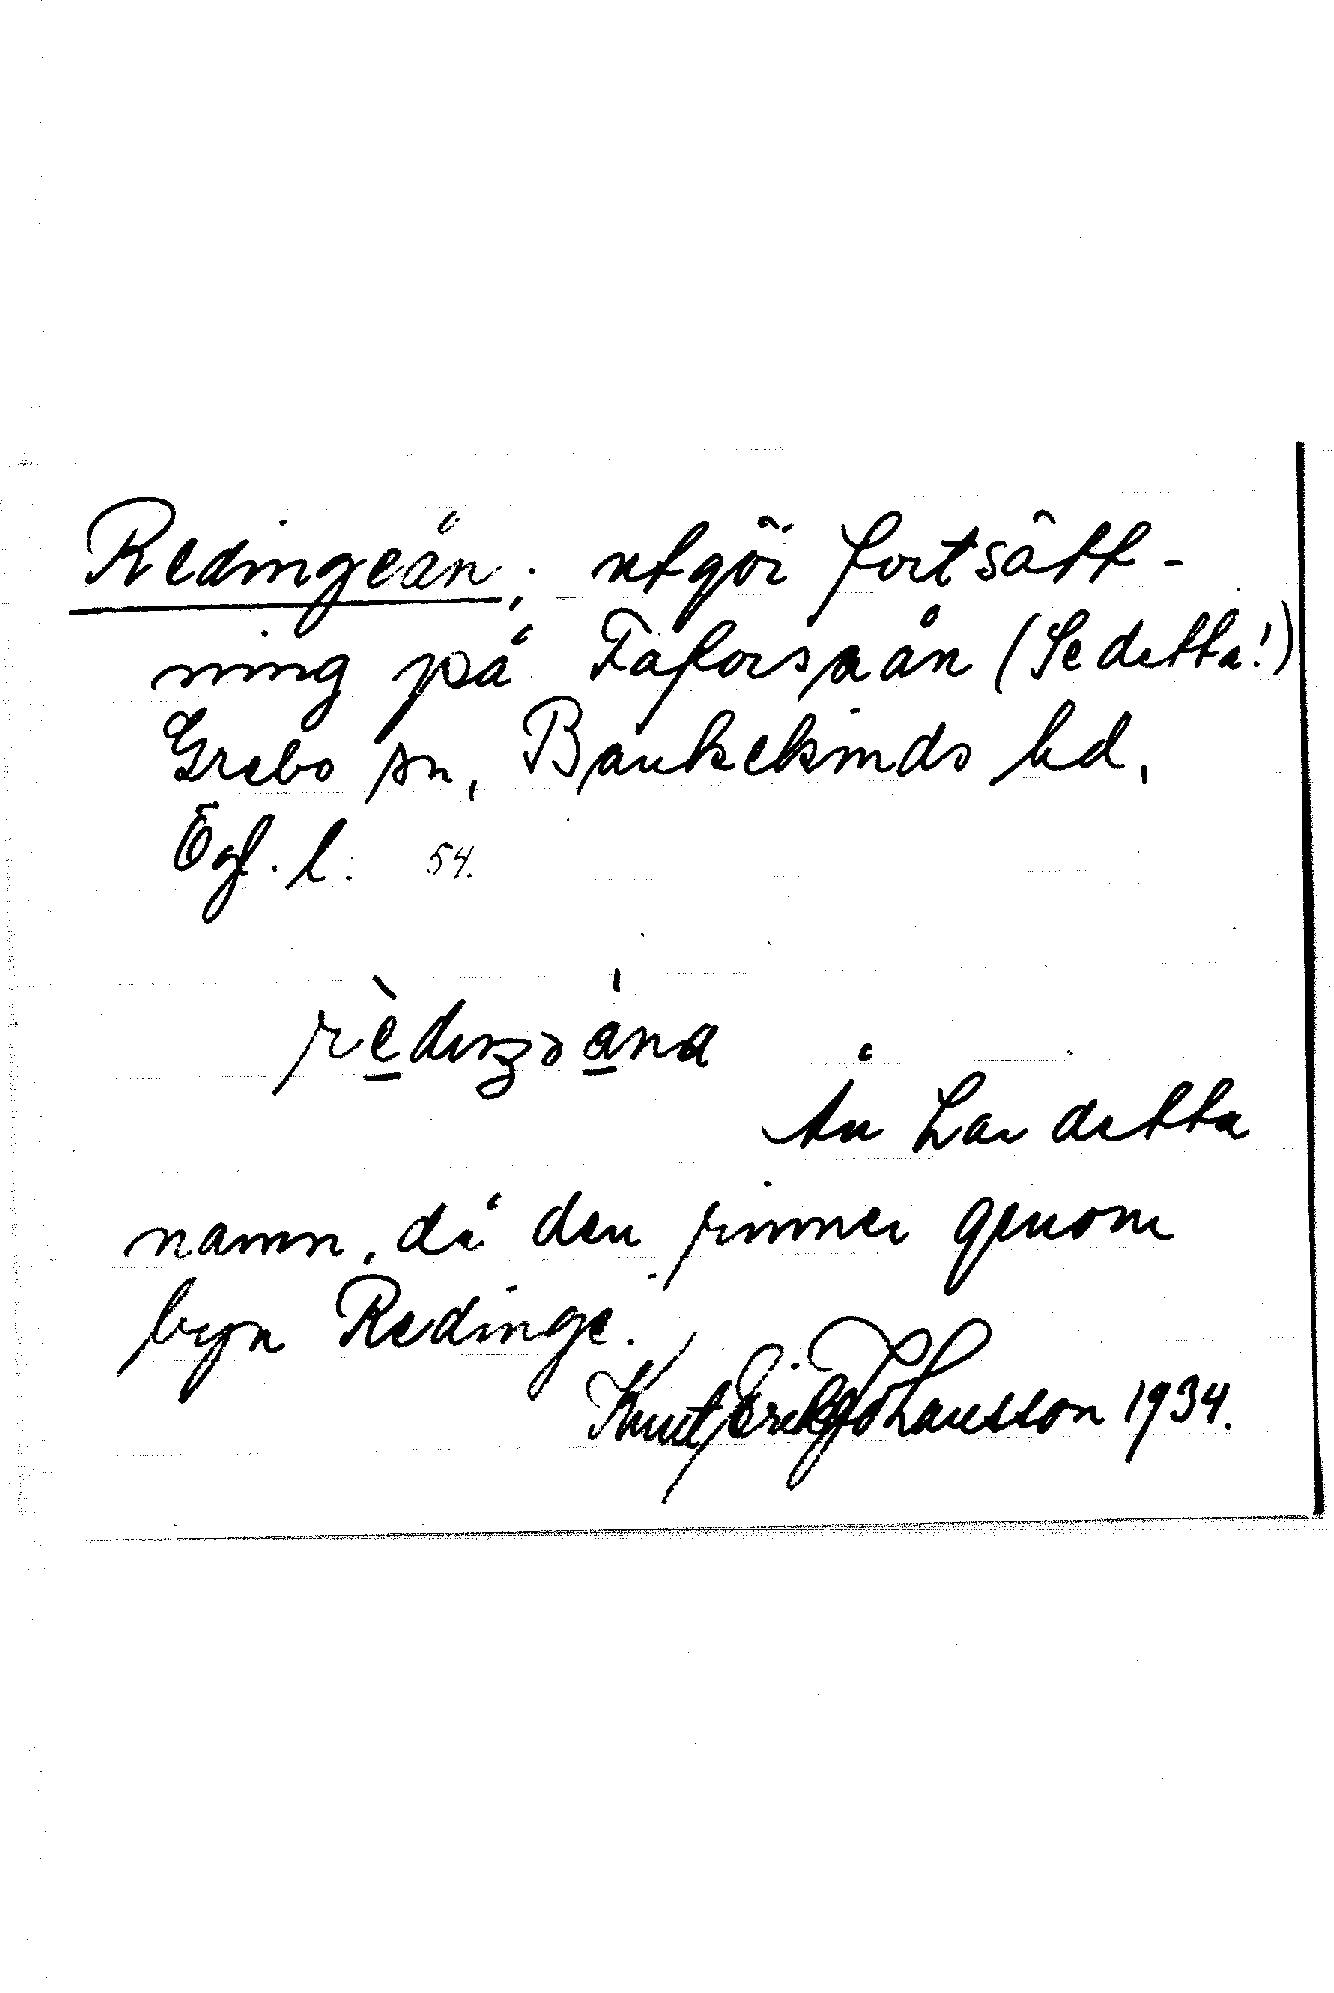 Redingeån; utgör fortsätt-
ning på Faforsaån (Se detta!)
Grebo sn, Bankekinds hd,
Ögl. l. 54.
Ån har detta
namn, då den rinner genom
byn Redinge.
Knut Erik Johansson 1934.